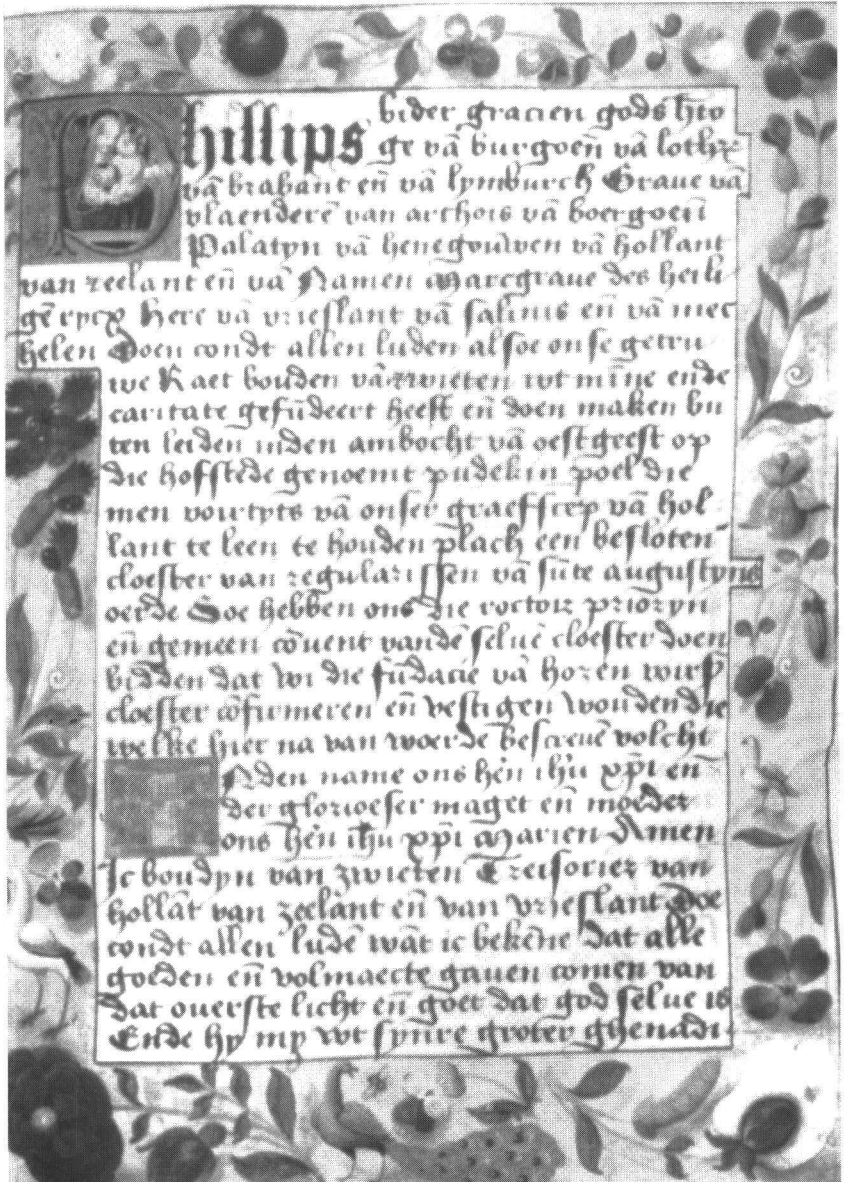 Phillips bider gracien gods hto
ge vā burgoen̄ vā lothr
vā brabant en̄ vā lymburch Graue vā
vlaenderē van arthois vā boergoen̄
Palatyn vā henegouwen vā hollant
van zeelant en̄ vā Namen Marcgraue des heili
gē rycx here vā vrieslant vā salinis en̄ vā mec
helen Doen condt allen luden alsoe onse getru
we Raet bouden vā zwieten wt mīne ende
caritate gefūdeert heeft en̄ doen maken bu
ten leiden inden ambocht vā oestgeest op
die hofstede genoemt pudekin poel die
men voirtyts vā onser graefscep vā hol
lant te leen te houden plach een besloten
cloester van regularissen vā sūte augustyns
oerdē Soe hebben ons die rectoir prioryn
en̄ gemeen cōuent vandē seluē cloester doen
bidden dat wi die fūdacie vā horen voirs
cloester cōfirmeren en̄ vestigen wouden die
welke hier na van woerde bescreuē volcht
INden name ons hēn ihū xp̄i en
der glorioeser maget en̄ moeder
ons hēn ihū xp̄i Marien Amen
Ic boudyn van zwieten Treisorier van
hollāt van zeelant en̄ van vrieslant Doe
condt allen ludē want ic bekēne dat alle
goeden en̄ volmaecte gauen comen van
dat ouerste licht en̄ goet dat god selue is
Ende hy my wt synre groter ghenadi